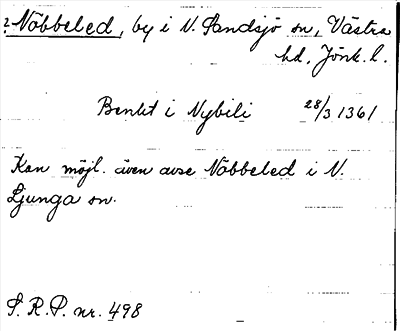 ? Nöbbeled, by i N. Sandsjö sn, Västra
hd, Jönk. l.
Benkt i Nybili 28/3 1361
Kan möjl. även avse Nöbbeled i N.
Ljunga sn.
S. R. P. nr. 498